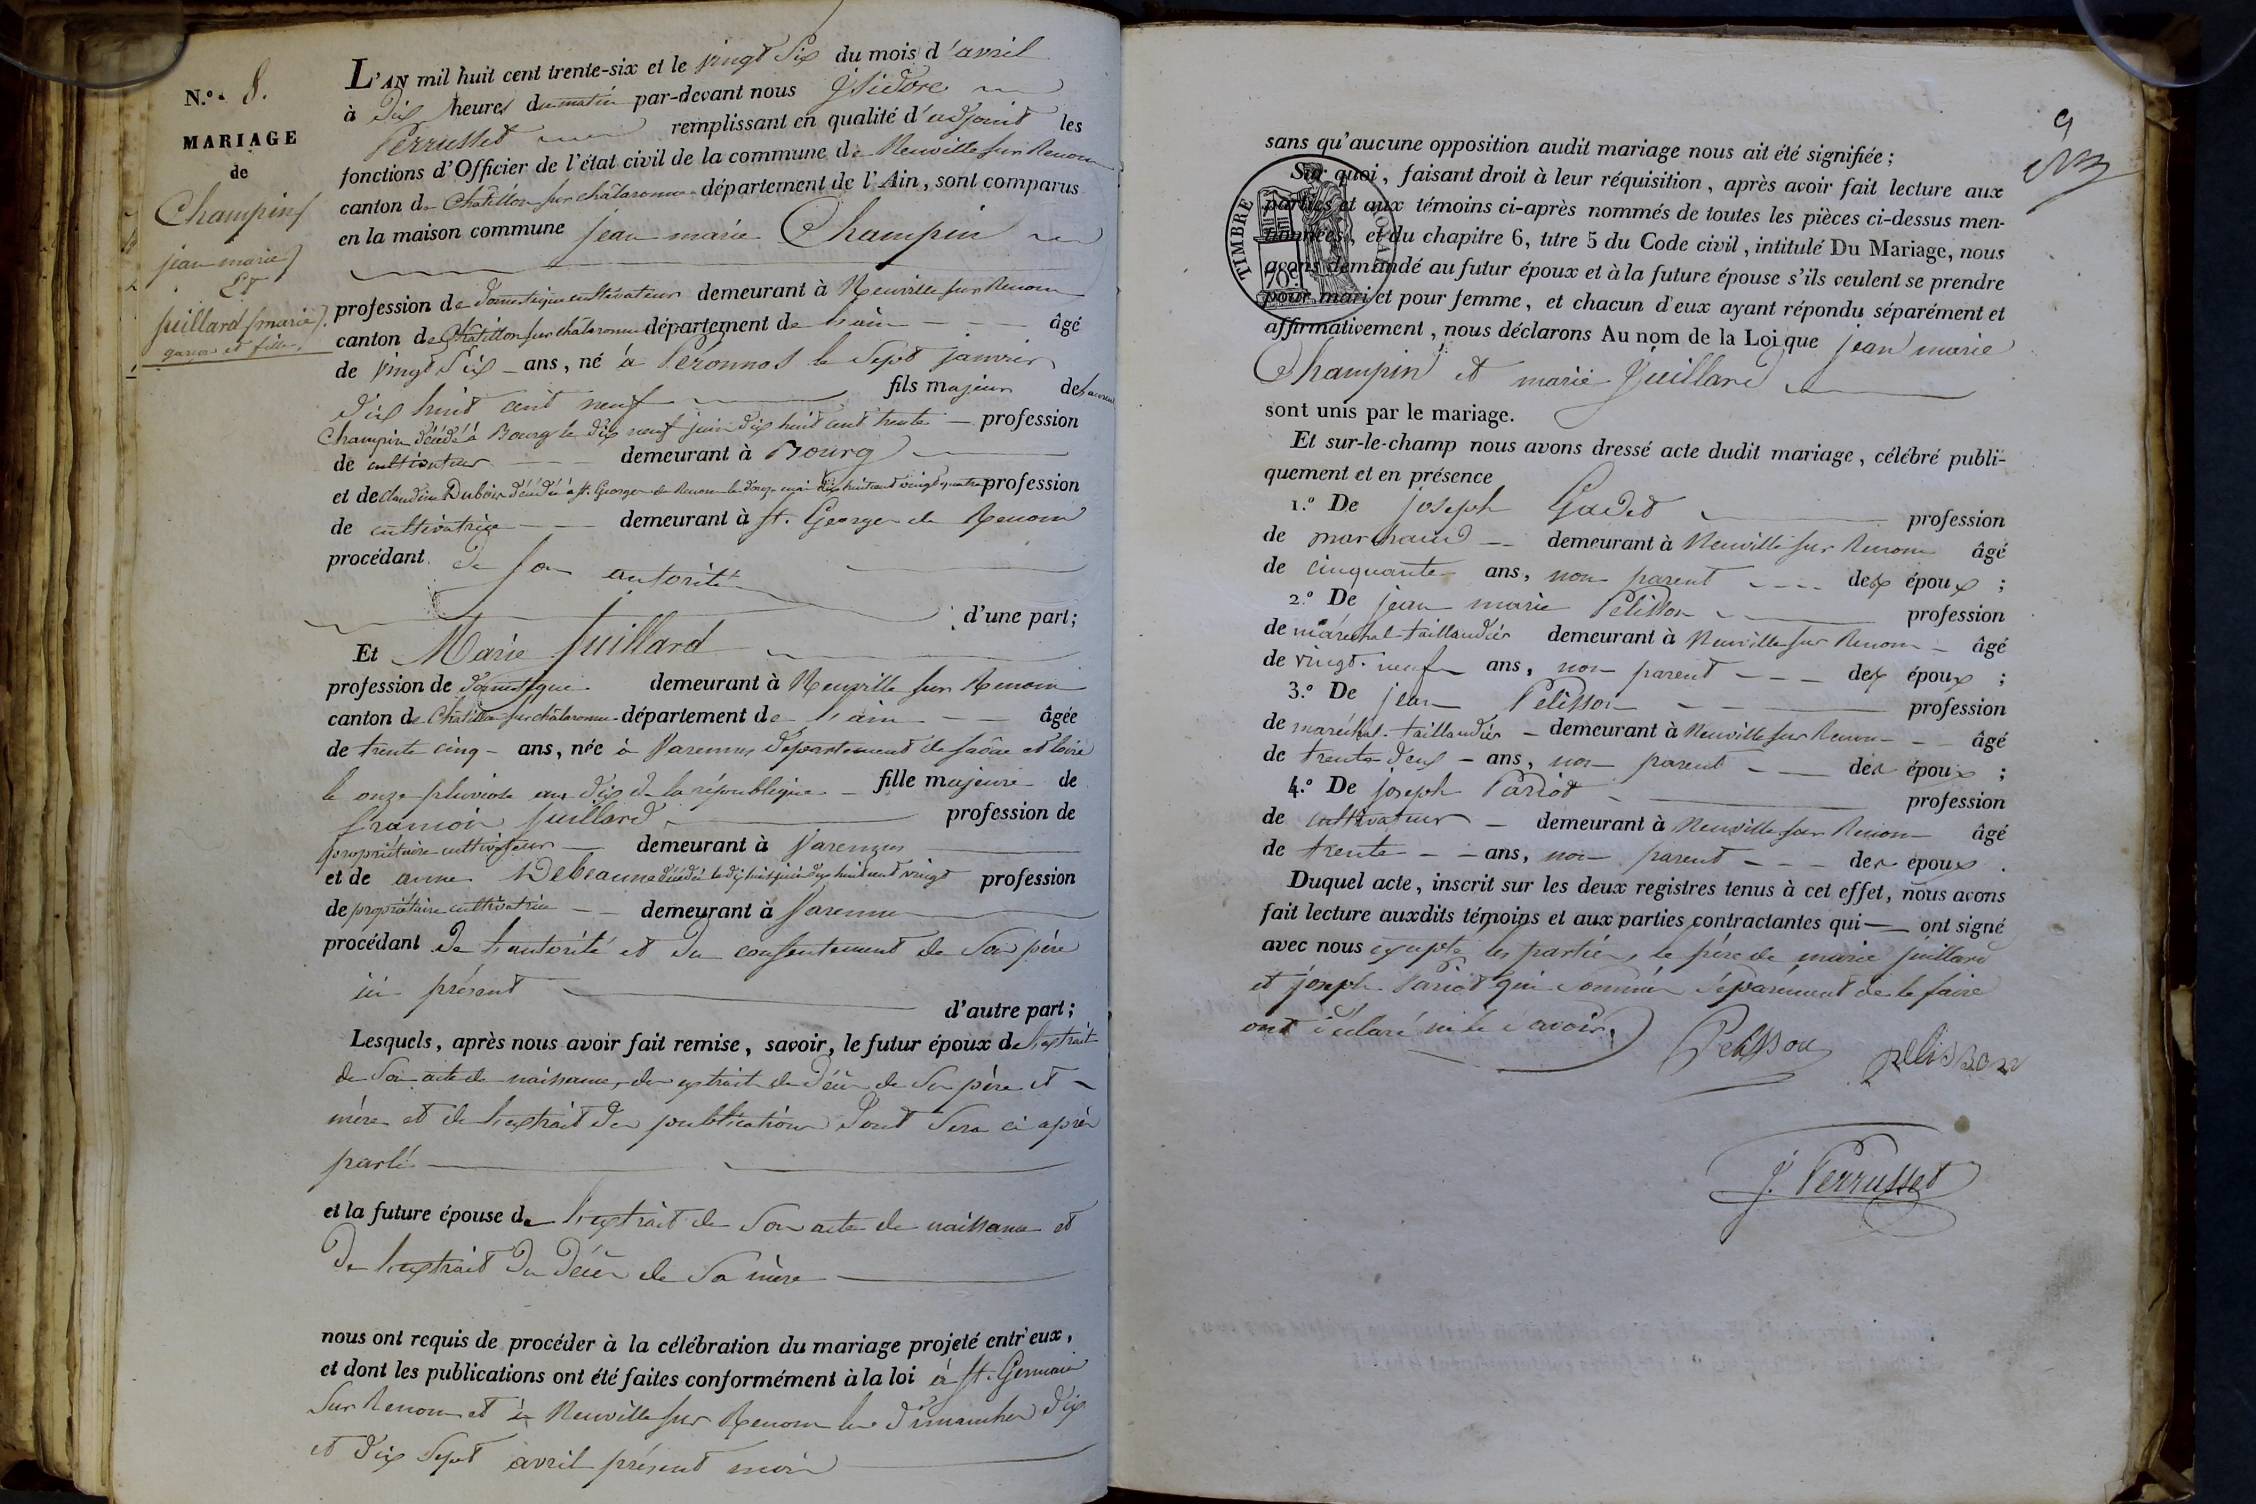 N.º 8.
MARIAGE
de
Champin
jean marie
Et
juillard marie
garçon et fille
L'AN mil huit cent trente-six et le vingt Six du mois d'avril
à dix heures du matin par-devant nous Isidore
Perrusset remplissant en qualité d'adjoint les
fonctions d'Officier de l'état civil de la commune de Neuville sur Renom
canton de Châtillon sur chalaronne département de l'Ain, sont comparus
en la maison commune jean marie Champin
profession de domestique cultivateur demeurant à Neuville sur Renom
canton de Châtillon sur chalaronne département de l'ain âgé
de vingt Six ans, né à Péronnas le Sept janvier
dix huit cent neuf fils majeur de
Champin décédé à Bourg le dix neuf juin dix huit cent trente profession
de cultivateur demeurant à Bourg
et de Claudine Dubois décédée à St. George de Renom le douze mai dix huit cent vingt quatre profession
de cultivatrice demeurant à St. George de Renom
procédant de Son autorité
d'une part;
Et Marie juillard
profession de domestique demeurant à Neuville sur Renom
canton de Châtillon sur chalaronne département de l'ain âgée
de trente cinq ans, née à Varennes département de saône et loire
le onze pluviose an dix de la république fille majeure de
françois juillard profession de
propriétaire cultivateur demeurant à Varennes
et de anne Debeaune décédée le dix huit juin dix huit cent vingt profession
de propriétaire cultivatrice demeurant à Varennes
procédant de l'autorité et du consentement de Son père
ici présent
d'autre part;
Lesquels, après nous avoir fait remise, savoir, le futur époux de l'extrait
de Son acte de naissance, des extraits de décès de Son père et
mère et de l'extrait des publications dont Sera ci après
parlé
et la future épouse de l'extrait de Son acte de naissance et
De l'extrait du décès de Sa mère
nous ont requis de procéder à la célébration du mariage projeté entr'eux,
et dont les publications ont été faites conformément à la loi à St. Germain
Sur Renom et à Neuville sur Renom les dimanches dix
et dix Sept avril présent mois
9
sans qu'aucune opposition audit mariage nous ait été signifiée;
Sur quoi, faisant droit à leur réquisition, après avoir fait lecture aux
parties et aux témoins ci-après nommés de toutes les pièces ci-dessus men-
tionnées, et du chapitre 6, titre 5 du Code civil, intitulé Du Mariage, nous
avons demandé au futur époux et à la future épouse s'ils veulent se prendre
pour mari et pour femme, et chacun d'eux ayant répondu séparément et
affirmativement, nous déclarons Au nom de la Loi que jean marie
TIMBRE ROYAL
70c
Champin et marie Juillard
sont unis par le mariage.
Et sur-le-champ nous avons dressé acte dudit mariage, célébré publi-
quement et en présence
1.º De joseph Gadet profession
de marchand demeurant à Neuville sur Renom âgé
de cinquante ans, non parent des époux;
2.º De jean marie Pelisson profession
de maréchal taillandier demeurant à Neuville sur Renom âgé
de vingt neuf ans, non parent des époux;
3.º De jean Pelisson profession
de maréchal taillandier demeurant à Neuville sur Renom âgé
de trente deux ans, non parent des époux;
4.º De joseph Pariot profession
de cultivateur demeurant à Neuville sur Renom âgé
de trente ans, non parent des époux.
Duquel acte, inscrit sur les deux registres tenus à cet effet, nous avons
fait lecture auxdits témoins et aux parties contractantes qui ont signé
avec nous excepté les parties, le père de marie juillard
et joseph Pariot qui sommés Séparément de le faire
ont déclaré ne le Savoir.
Pelisson pelisson
J. Perrusset